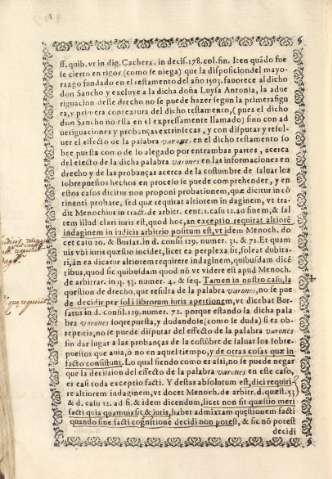 ff. quib. vt in dig. Cachera. in decis. 178. col. fin. Iten quãdo fue
se cierto en rigor (como se niega) que la disposicion del mayo-
razgo fundado en el testamento del año 1503. fauorece al dicho
don Sancho y excluye a la dicha doña Luysa Antonia, la aue
riguacion deste derecho no se puede hazer segun la primera figu
ra, y primera contextura del dicho testamento, (pues el dicho
don Sancho no esta en el expressamente llamado) sino con a
ueriguaciones y probanças extrinsecas, y con disputar y resol-
uer el effecto de la palabra varones en el dicho testamento so
bre puesta con de lo alegado por entrambas partes, acerca
del efecto de la dicha palabra varones en las informaciones en
derecho y de las probanças acerca de la costumbre de saluar los
sobrepuestos hechos en processo se puede comprehender, y en
estos casos dicitur non proponi probationem, quæ dicitur in cõ
tinenti probate, sed quæ requirat altiorem indaginem, vt tra-
dit Menochius in tract. de arbitr. cent. 2. casu 12. ad finem, & sal
tem illud clari iuris est, quod hoc, an exceptio requirat altiorē
indaginem in iudicis arbitrio positum est, vt idem Menoch. do
cet casu 20. & Bursat. in d. consi 129. numer. 31. & 72. Ex quam
uis vbi iuris questio incidet, licet ea perplexa sit, soleat dubita-
ri, an ea dicatur altiorem requirere indaginem, quibusdam dicē
tibus, quod sic quibusdam quod nõ vt videre est apud Menoch.
de arbitrar. in q. 53. numer. 4. & seq. Tamen in nostro casu, la
question de derecho, que resulta de la palabra varones, no se pue
de decidir per soli librorum iuris apertionem, vt dicebat Bur-
satus in d. consil. 129. numer. 72. porque estando la dicha pala
bra varones sobrepuesta, y dudandose (como se duda) si es ob-
reptitio, no se puede disputar del effecto de la palabra varones
sin dar lugar a las probanças de la costũbre de saluar los sobre-
puestos que auia, o no en aquel tiempo, y de otras cosas que in
facto consistunt. Lo qual siendo como es assi, no se puede negar
que la decission del effecto de la palabra varones en este caso,
es casi toda exceptio facti. Y destas absolutum est, dici requiri-
re altiorem indaginem, vt docet Menoch. de arbitr. d. quæst. 53
& d. casu 12. ad fi. & idem dicendum, licet non sit questio meri
facti quia quamuis sic & iuris, haber admixtam questionem facti
quando sine facti cognitione decidi non potest, & sic nõ potest
decidi